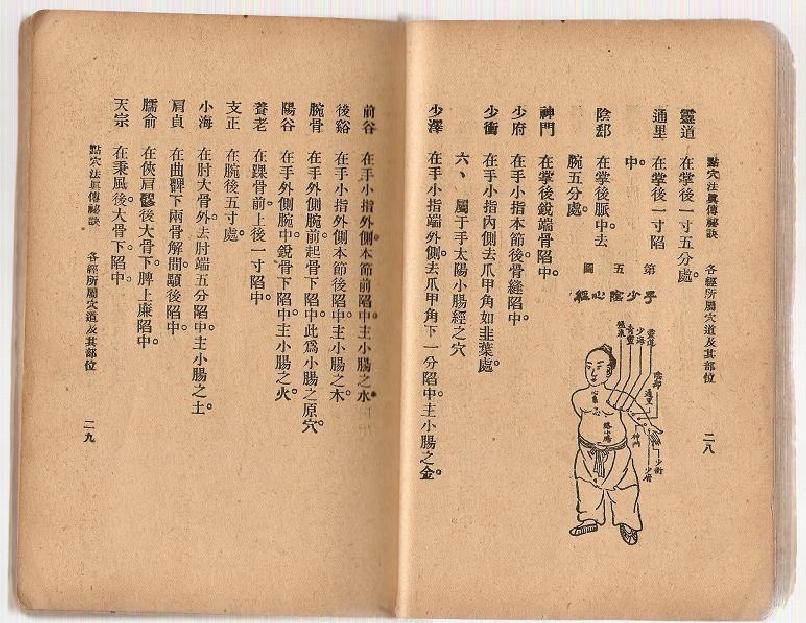 點穴法眞傳秘訣 各經所屬穴道及其部位 二八
靈道 在掌後一寸五分處。
通里 在掌後一寸陷
中。
陰郄 在掌後脈中。去
腕五分處。
神門 在掌後銳端骨陷中。
少府 在手小指本節後。骨縫陷中。
少衝 在手小指內側。去爪甲角如韭葉處。
六、 屬于手太陽小腸經之穴
少澤 在手小指端外側。去爪甲角下一分陷中。主小腸之金。
第五圖
手少陰心經
極泉
青靈
少海
靈道
陰郄
通里
神門
少衝
少府
心
絡小腸
前谷 在手小指外側。本節前陷中。主小腸之水。
後谿 在手小指外側。本節後陷中。主小腸之木。
腕骨 在手外側腕前。起骨下陷中。此爲小腸之原穴。
陽谷 在手外側腕中。銳骨下陷中。主小腸之火。
養老 在踝骨前上。後一寸陷中。
支正 在腕後五寸處。
小海 在肘大骨外。去肘端五分陷中。主小腸之土。
肩貞 在曲髀下。兩骨解間。顒後陷中。
臑俞 在俠肩髎後。大骨下。胛上廉陷中。
天宗 在秉風後。大骨下陷中。
點穴法眞傳秘訣 各經所屬穴道及其部位 二九